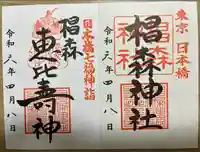 東京 日本橋
椙森神社
令和六年四月八日
日本橋七福神詣
椙森
恵比壽神
令和六年四月八日